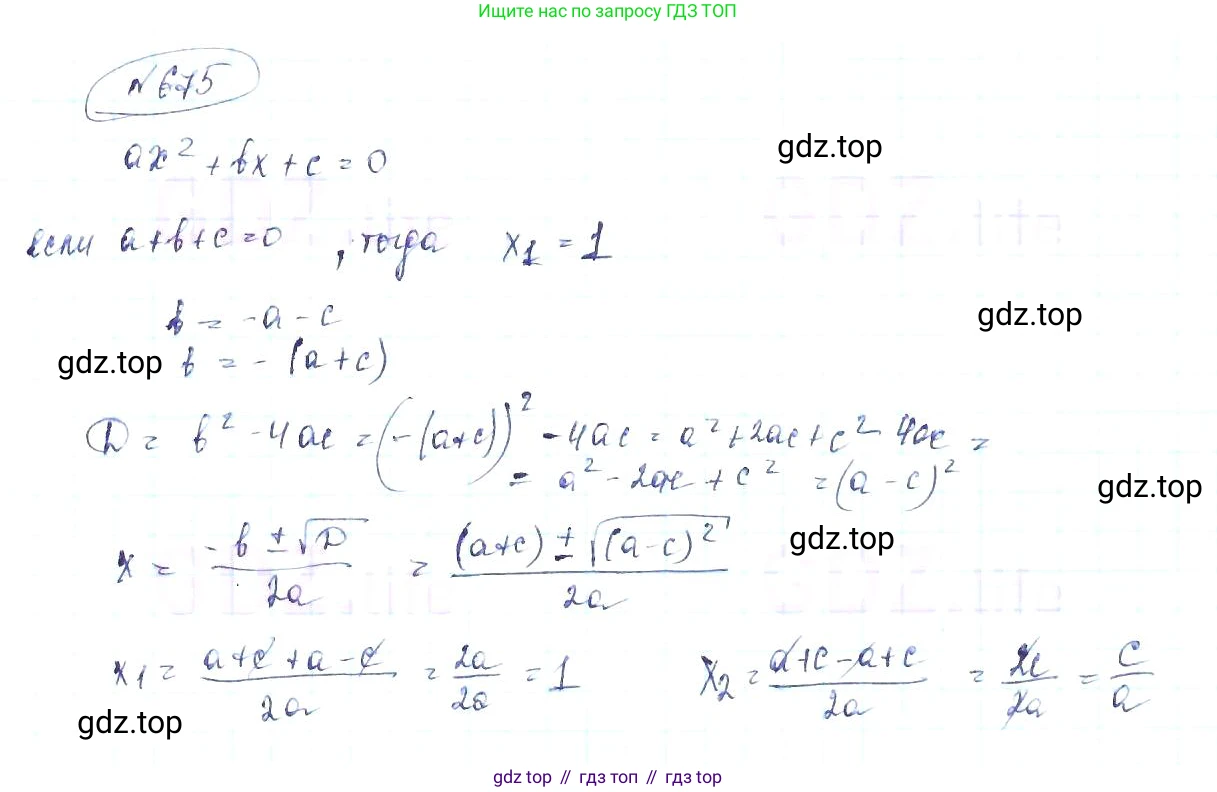 Ищите нас по запросу ГДЗ ТОП
№ 675
ax² + bx + c = 0
gdz.top
если a+b+c=0, тогда x₁ = 1
b = -a - c
gdz.top
gdz.top
b = - (a+c)
D = b² - 4ac = (-(a+c))² - 4ac = a² + 2ac + c² - 4ac =
= a² - 2ac + c² = (a - c)²
gdz.top
gdz.top
x = (-b ± √D)/(2a) = ((a+c) ± √((a-c)²))/(2a)
x₁ = (a+c+a-c)/(2a) = 2a/2a = 1 x₂ = (a+c-a+c)/(2a) = 2c/2a = c/a
gdz.top
gdz top // гдз топ // gdz top